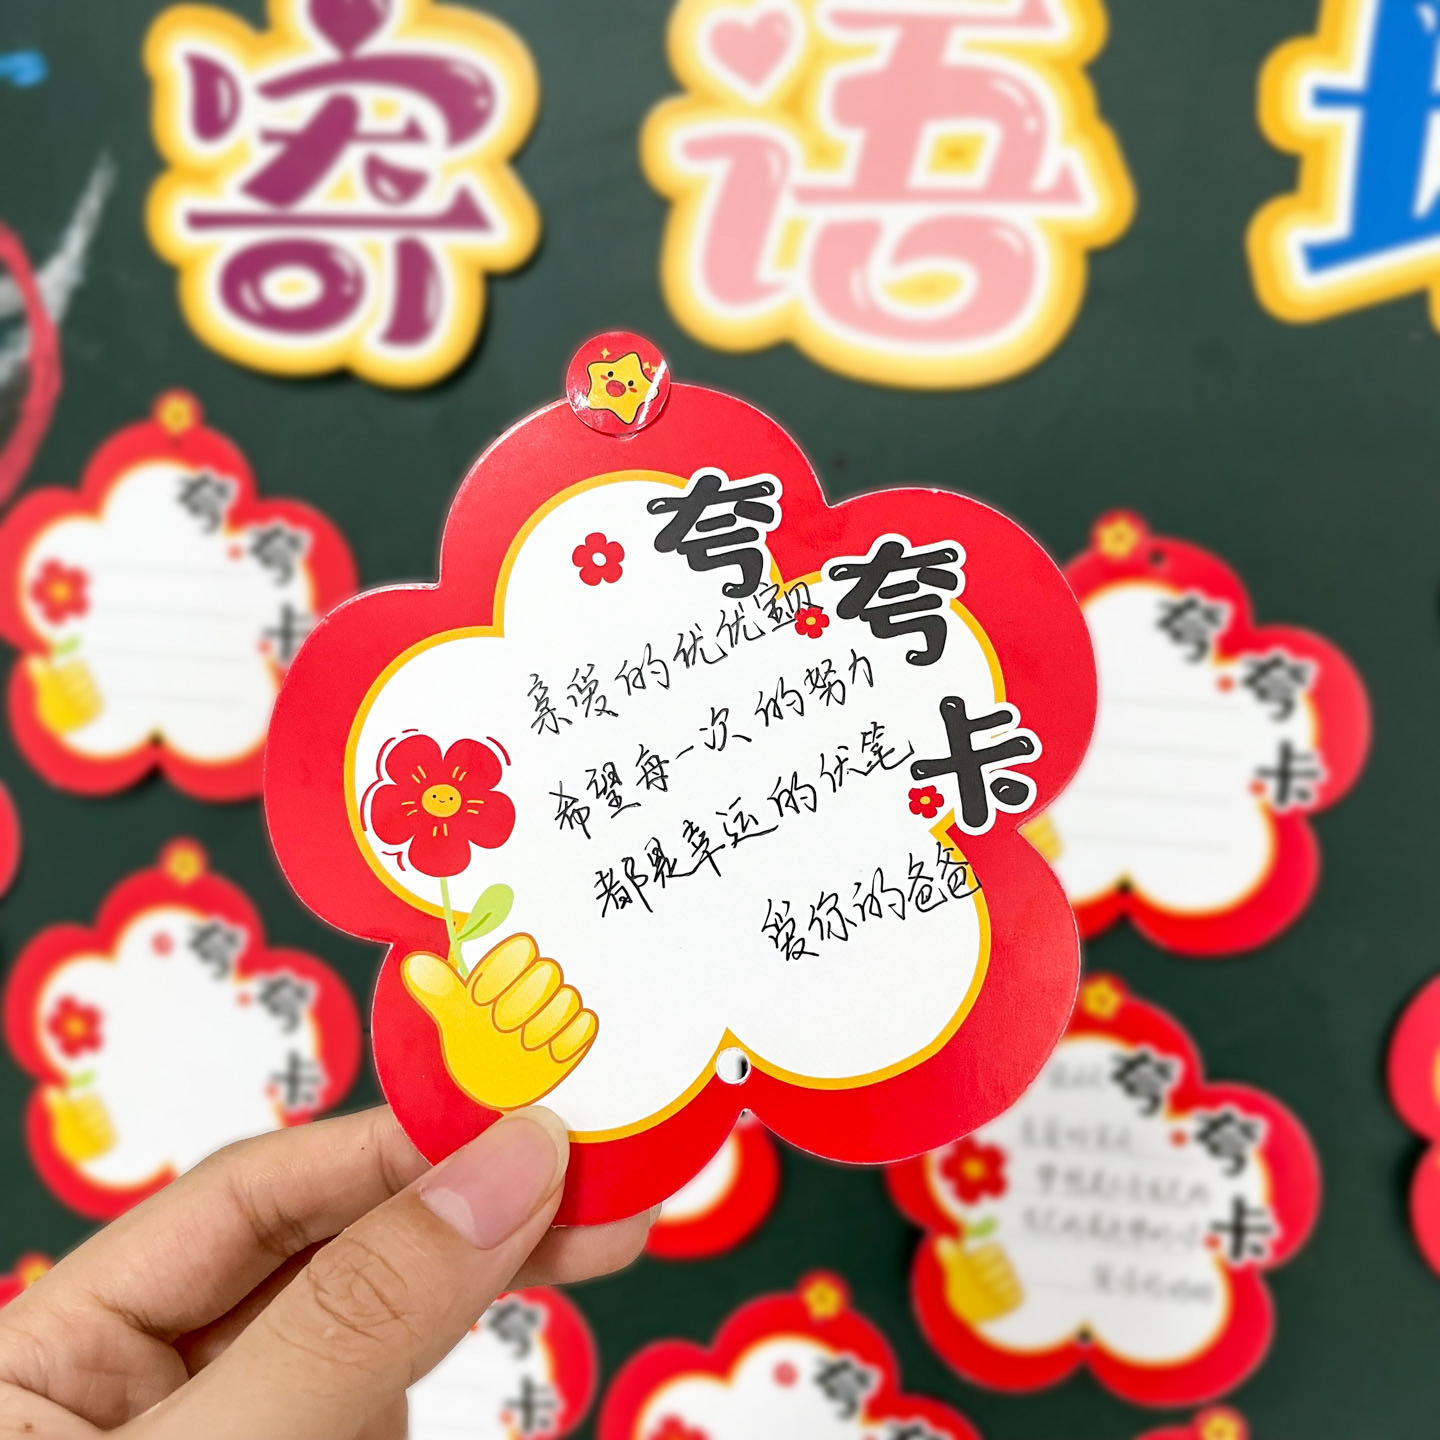 寄语
夸夸卡
亲爱的优优宝贝
希望每一次的努力
都是幸运的伏笔
爱你的爸爸
夸夸卡
夸夸卡
夸夸卡
夸夸卡
夸卡
夸夸